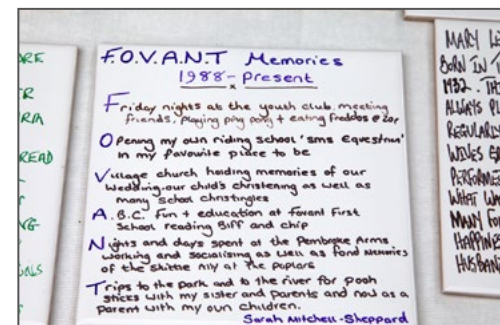 F.O.V.A.N.T Memories
1988 - Present
Friday nights at the youth club, meeting
friends, playing ping pong + eating freddos @ 20p
Opening my own riding school 'sms Equestrian'
in my favourite place to be
Village church holding memories of our
Wedding, our child's christening as well as
many school christingles
A.B.C. Fun + education at Fovant First
School reading Biff and chip
Nights and days spent at the Pembroke Arms
working and socialising as well as fond memories
of the skittle ally at the Poplars
Trips to the park and to the river for pooh
sticks with my sister and parents and now as a
parent with my own children.
Sarah Mitchell-Sheppard
READ
MARY
BORN IN
1932.
ALWAYS
REGULAR
WIVES
PERFORME
WHAT
MANY
HAPPINE
HUSBAN